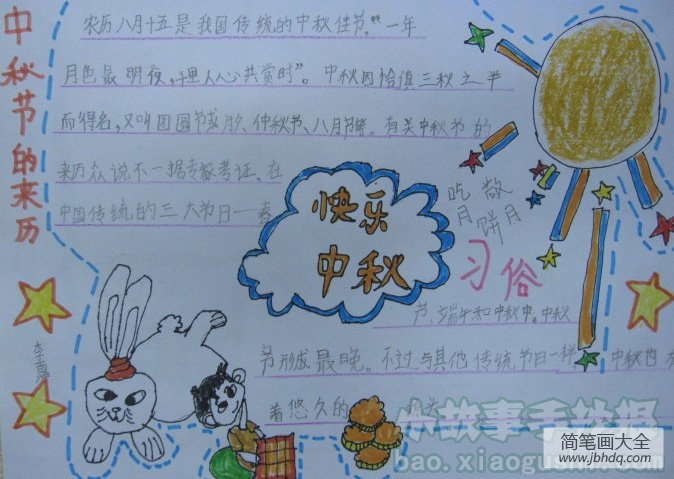 中秋节的来历
农历八月十五是我国传统的中秋佳节。“一年
月色最明夜，千里人心共赏时”。中秋因恰值三秋之半
而得名，又叫团圆节
仲秋节、八月节等。有关中秋节的
来历众说不一据专家考证、在
中国传统的三大节日—春
快乐
中秋
吃月饼
习俗
节、端午和中秋中。中秋
节形成最晚。不过与其他传统节日一样，中秋也有
着悠久的
小故事手抄报
bao.xiaogushi.com
简笔画大全
www.jbhdq.com